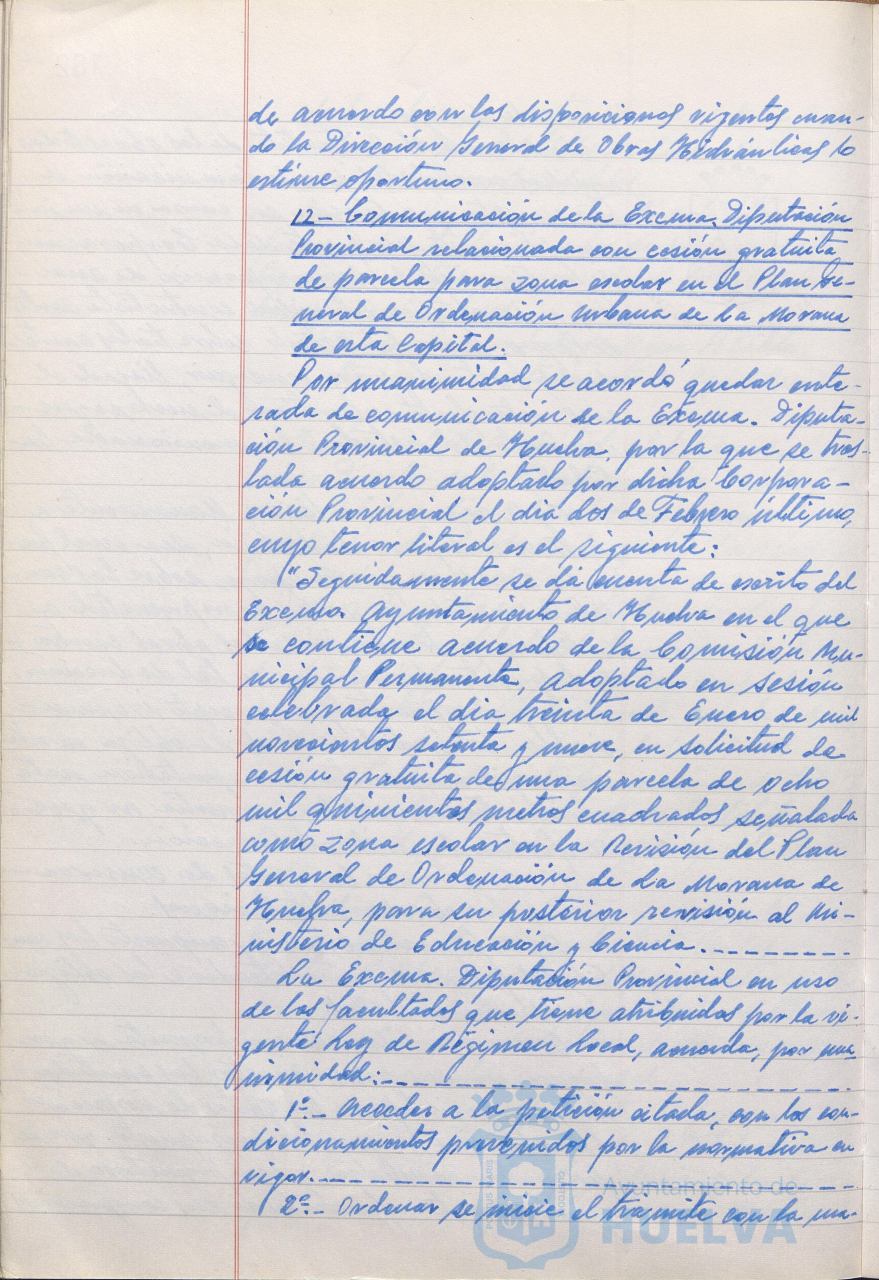 de acuerdo con las disposiciones vigentes cuan-
do la Dirección General de Obras Hidráulicas lo
estime oportuno.
12- Comunicación de la Excma. Diputación
Provincial relacionada con cesión gratuita
de parcela para zona escolar en el Plan Ge-
neral de Ordenación Urbana de La Morana
de esta Capital.
Por unanimidad se acordó quedar ente-
rada de comunicación de la Excma. Diputa-
ción Provincial de Huelva, por la que se tras-
lada acuerdo adoptado por dicha Corpora-
ción Provincial el dia dos de Febrero último,
cuyo tenor literal es el siguiente:
"Seguidamente se dá cuenta de escrito del
Excmo. Ayuntamiento de Huelva en el que
se contiene acuerdo de la Comisión Mu-
nicipal Permanente, adoptado en sesión
celebrada el dia treinta de Enero de mil
novecientos setenta y nueve, en solicitud de
cesión gratuita de una parcela de ocho
mil quinientos metros cuadrados señalada
como zona escolar en la Revisión del Plan
General de Ordenación de La Morana de
Huelva, para su posterior revisión al Mi-
nisterio de Educación y Ciencia.--------
La Excma. Diputación Provincial en uso
de las facultades que tiene atribuidas por la vi-
gente Ley de Régimen Local, acuerda, por una
nimidad:--------
1º.- Acceder a la petición citada, con los con-
dicionamientos prevenidos por la normativa en
vigor.--------
2º.- Ordenar se inicie el tramite con la ma-
Ayuntamiento de
HUELVA